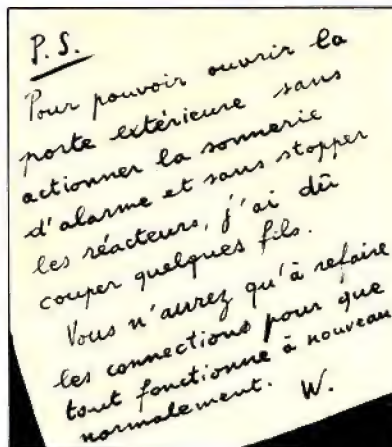 P.S.
Pour pouvoir ouvrir la
porte extérieure sans
actionner la sonnerie
d'alarme et sans stopper
les réacteurs, j'ai dû
couper quelques fils.
Vous n'aurez qu'à refaire
les connections pour que
tout fonctionne à nouveau
normalement. W.